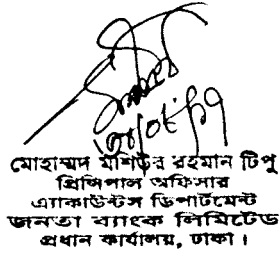 মোহাম্মদ মশিউর রহমান টিপু
প্রিন্সিপাল অফিসার
এ্যাকাউন্টস ডিপার্টমেন্ট
জনতা ব্যাংক লিমিটেড
প্রধান কার্যালয়, ঢাকা।